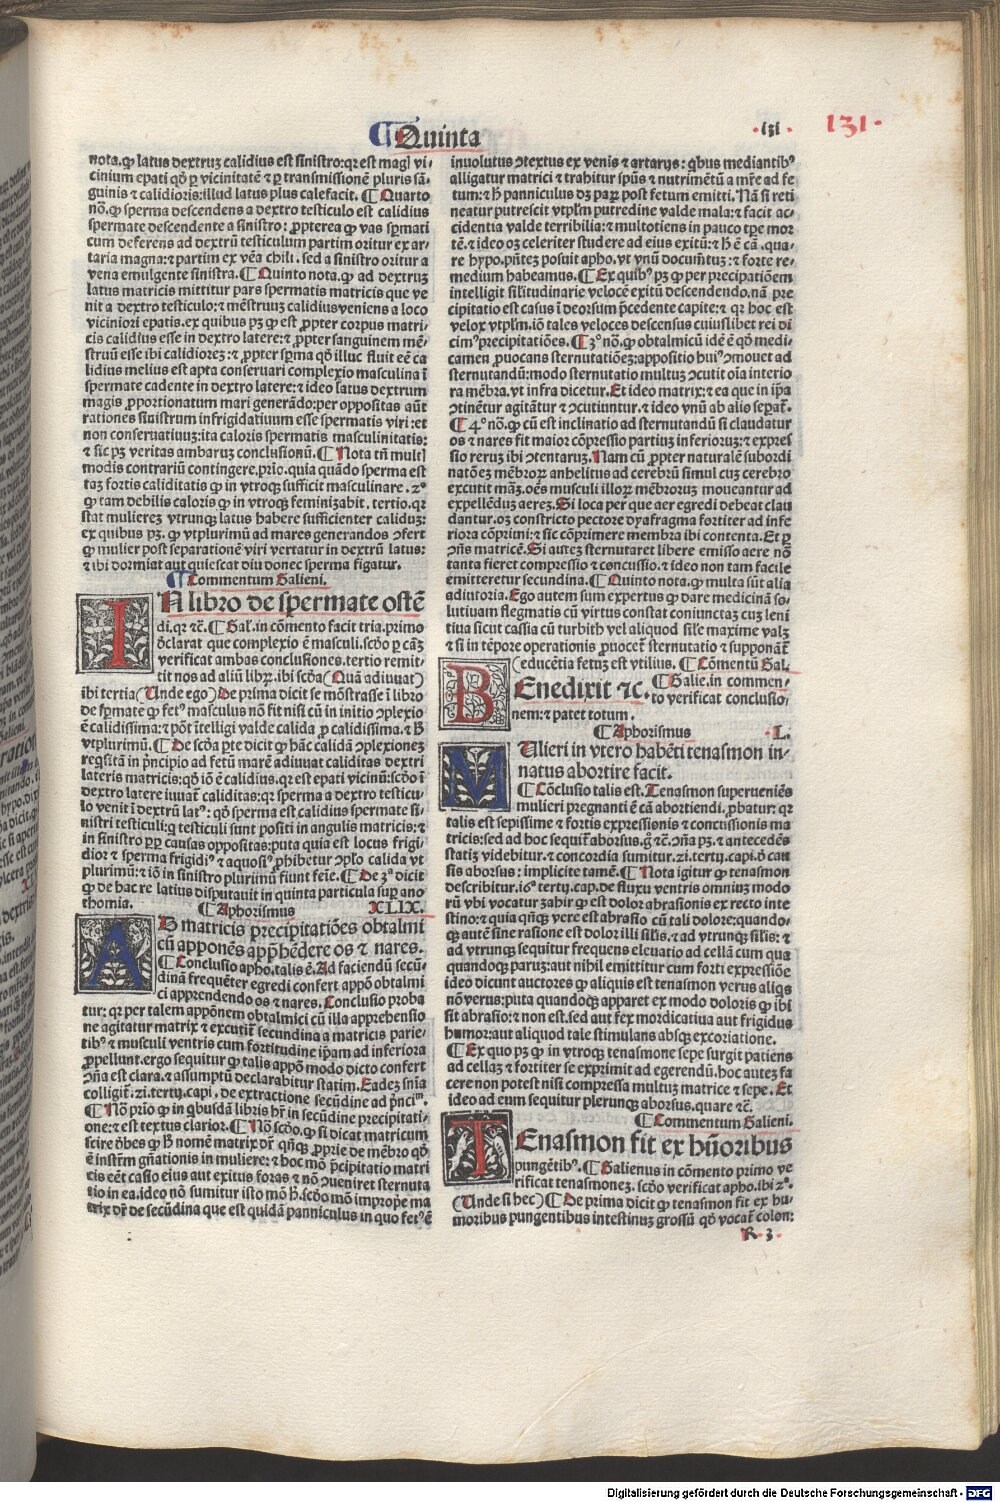 ¶Quinta
·131·
131·
nota.ꝙ latus dextruꝫ calidius est sinistro:qꝛ est magꝭ vi⸗
cinium epati qð ꝑ vicinitatē ⁊ ꝑ transmissionē pluris sã⸗
guinis ⁊ calidioris:illud latus plus calefacit. ¶ Quarto
nõ.ꝙ sperma descendens a dextro testiculo est calidius
spermate descendente a sinistro: ꝓpterea ꝙ vas spermati
cum deferens ad dextrũ testiculum partim oritur ex ar⸗
taria magna:⁊ partim ex vēa chili. sed a sinistro oritur a
vena emulgente sinistra. ¶ Quinto nota.ꝙ ad dextruꝫ
latus matricis mittitur pars spermatis matricis que ve
nit a dextro testiculo:⁊ mēstruuꝫ calidius veniens a loco
viciniori epatis.ex quibus pꝫ ꝙ est ꝓpter corpus matri⸗
cis calidius esse in dextro latere:⁊ ꝓpter sanguinem mē⸗
struũ esse ibi calidioreꝫ:⁊ ꝓpter sꝑma qð illuc fluit eē ca
lidius melius est apta conseruari complexio masculina ĩ
spermate cadente in dextro latere:⁊ ideo latus dextrum
magis ꝓportionatum mari generãdo:per oppositas aũt
rationes sinistrum infrigidatiuum esse spermatis viri:et
non conseruatiuuꝫ:ita caloris spermatis masculinitatis:
⁊ sic pꝫ veritas ambaruꝫ conclusionũ. ¶ Nota tñ multꝭ
modis contrariũ contingere.prĩo.quia quãdo sperma est
taꝫ fortis caliditatis ꝙ in vtroqꝫ sufficit masculinare. 2°
ꝙ tam debilis caloris ꝙ in vtroqꝫ feminizabit. tertio.qꝛ
stat muliereꝫ vtrunqꝫ latus habere sufficienter caliduꝫ:
ex quibus pꝫ. ꝙ vt plurimũ ad mares generandos ↄfert
ꝙ mulier post separationē viri vertatur in dextrũ latus:
⁊ ibi dormiat aut quiescat diu donec sperma figatur.
¶ Commentum Galieni.
IN libro de spermate ostē
di.qꝛ ⁊c̃. ¶ Gal.in cõmento facit tria.primo
ↄclarat que complexio ē masculi.scðo ꝑ cãꝫ
verificat ambas conclusiones.tertio remit⸗
tit nos ad aliũ librꝫ.ibi scða ( Quã adiuuat)
ibi tertia ( Unde ego ) De prima dicit se mõstrasse ĩ libro
de sꝑmate ꝙ fetꝰ masculus nõ fit nisi cũ in initio ↄplexio
ē calidissima:⁊ põt ĩtelligi valde calida ꝓ calidissima.⁊ B̃
vtplurimũ. ¶ De scða pte dicit ꝙ hãc calidã ↄplexioneꝫ
reqsitã in pⁿcipio ad fetũ marē adiuuat caliditas dextri
lateris matricis:qð iõ ē calidius.qꝛ est epati vicinũ:scðo ĩ
dextro latere iuuãt caliditas:qꝛ sperma a dextro testicu⸗
lo venit ĩ dextrũ latꝰ: qð sperma est calidius spermate si⸗
nistri testiculi:q̃ testiculi sunt positi in angulis matricis:⁊
in sinistro ꝓꝑ causas oppositas:puta quia est locus frigi⸗
dior ⁊ sperma frigidiꝰ ⁊ aquosiꝰ ꝓhibetur ↄplo calida vt
plurimũ:⁊ iõ in sinistro plurimũ fiunt feñe. ¶ De 3ª dicit
ꝙ de hac re latius disputauit in quinta particula suꝑ ano
thomia.
¶ Aphorismus XLIX.
AB matricis precipitatiões obtalmi
cũ apponēs appꝫhēdere os ⁊ nares.
¶ Conclusio apho.talis ē. Ad faciendũ secũ⸗
dinã frequēter egredi confert appõ obtalmi
ci apprendendo os ⁊ nares. Conclusio proba
tur: qꝛ per talem appõnem obtalmici cũ illa apprehensio
ne agitatur matrix ⁊ excutiť secundina a matricis parie⸗
tibꝰ ⁊ musculi ventris cum fortitudine ip̃am ad inferiora
ꝓpellunt.ergo sequitur ꝙ talis appõ modo dicto confert
ↄñã est clara.⁊ assumptũ declarabitur statim. Eadeꝫ sñia
colligiť:.xi.tertij.capi. de extractione secũdine ad pⁿciᵐ.
¶ Nõ prĩo ꝙ in qbusdã libris hr̃ in secũdine precipitati⸗
one:⁊ est textus clarior. ¶ Nõ scðo.ꝙ si dicat matricum
scire dr̃bes ꝙ B̃ nomē matrix dr̃ qñqꝫ ꝓprie de mēbro qð
ē instr̃m gñationis in muliere:⁊ hoc mõ pⁿcipitatio matri
cis eēt casio eius aut exitus foras ⁊ nõ ↄueniret sternuta
tio in ea.ideo nõ sumitur isto mõ B̃.scðo mõ improp̃e ma
trix dr̃ de secũdina que est quidã panniculus in quo fetꝰ ē
inuolutus ↄtextus ex venis ⁊ artarijs: qbus mediantibꝰ
alligatur matrici ⁊ trahitur spũs ⁊ nutrimētũ a mr̃e ad fe
tum:⁊ B̃ panniculus dꝫ paꝝ post fetum emitti. Nã si reti
neatur putrescit vtplm̃ putredine valde mala:⁊ facit ac⸗
cidentia valde terribilia:⁊ multotiens in pauco tꝑe mor
tē.⁊ ideo oꝫ celeriter studere ad eius exitũ:⁊ B̃ ē cã .qua⸗
re hypo.pñteꝫ posuit apho.vt vnũ documťuꝫ:⁊ forte re⸗
medium habeamus. ¶ Ex quibꝰ pꝫ ꝙ per precipatiõem
intelligit silitudinarie velocē exitũ descendendo.nã pre
cipitatio est casus ĩ deorsum pⁿcedente capite:⁊ qꝛ hoc est
velox vtplm̃.iõ tales veloces descensus cuiuslibet rei di
cimꝰ precipitatiões. ¶ 3° nõ.ꝙ obtalmicũ idē ē qð medi⸗
camen ꝓuocans sternutatiões:appositio huiꝰ ↄmouet ad
sternutandũ:modo sternutatio multuꝫ ↄcutit oĩa interio
ra mēbra.vt infra dicetur. Et ideo matrix:⁊ ea que in ip̃a
ↄtinētur agitãtur ⁊ ↄcutiuntur.⁊ ideo vnũ ab alis sepať.
¶ 4° nõ.ꝙ cũ est inclinatio ad sternutandũ si claudatur
os ⁊ nares fit maior cõpressio partiuꝫ inferioruꝫ:⁊ expres
sio reruꝫ ibi ↄtentaruꝫ. Nam cũ ꝓpter naturalē subordi
natõeꝫ mēbroꝝ anhelitus ad cerebrũ simul cuꝫ cerebro
excutit mãꝫ.oēs musculi illoꝝ mēbroruꝫ moueantur ad
expellēduꝫ aereꝫ. Si loca per que aer egredi debeat clau
dantur.oꝫ constricto pectore dyafragma fortiter ad infe
riora cõprimi:⁊ sic cõprimere membra ibi contenta. Et ꝑ
ↄñs matricē. Si auteꝫ sternutaret libere emisso aere nõ
tanta fieret compressio ⁊ concussio.⁊ ideo non tam facile
emitteretur secundina. ¶ Quinto nota.ꝙ multa sũt alia
adiutoria. Ego autem sum expertus ꝙ dare medicinã so⸗
lutiuam flegmatis cũ virtus constat coniunctaꝫ cuꝫ leni
tiua sicut cassia cũ turbith vel aliquod sile maxime valꝫ
⁊ si in tēpore operationis ꝓuoceť sternutatio ⁊ supponať
(educētia fetuꝫ est vtilius. ¶ Cõmentũ Gal.
BEnedixit ⁊c. ¶ Galie.in commen⸗
to verificat conclusio⸗
nem:⁊ patet totum.
¶ Aphorismus ·L.
MUlieri in vtero habēti tenasmon in⸗
natus abortire facit.
¶ Cõclusio talis est. Tenasmon superueniēs
mulieri pregnanti ē cã abortiendi. ꝓbatur: qꝛ
talis est sepissime ⁊ fortis expressionis ⁊ concussionis ma
tricis:sed ad hoc sequiť aborsus.g̃ ⁊c̃.ↄñã pꝫ.⁊ antecedēs
statiꝫ videbitur.⁊ concordia sumitur.xi.tertij.capi.ð cau
sis aborsus: implicite tamē. ¶ Nota igitur ꝙ tenasmon
describitur.16ª tertij.cap.de fluxu ventris omniuꝫ modo
rũ vbi vocatur zahir ꝙ est dolor abrasionis ex recto inte
stino:⁊ quia qñqꝫ vere est abrasio cũ tali dolore:quando⸗
qꝫ autē sine rasione est dolor illi silis.⁊ ad vtrunqꝫ silis: ⁊
ad vtrunqꝫ sequitur frequens eleuatio ad cellã cum qua
quandoqꝫ paruꝫ:aut nihil emittitur cum forti expressiõe
ideo dicunt auctores ꝙ aliquis est tenasmon verus aliqs
nõ verus:puta quandoqꝫ apparet ex modo doloris ꝙ ibi
sit abrasio:⁊ non est.sed aut fex mordicatiua aut frigidus
humor:aut aliquod tale stimulans absqꝫ excoriatione.
¶ Ex quo pꝫ ꝙ in vtroqꝫ tenasmone sepe surgit patiens
ad cellaꝫ ⁊ fortiter se exprimit ad egerendũ.hoc auteꝫ fa
cere non potest nisi compressa multuꝫ matrice ⁊ sepe. Et
ideo ad eum sequitur plerunqꝫ aborsus.quare ⁊c̃.
¶ Commentum Galieni.
TEnasmon fit ex hũoribus
pungētibꝰ. ¶ Galienus in cõmento primo ve
rificat tenasmoneꝫ. scðo verificat apho.ibi 2ª.
( Unde si hec ) ¶ De prima dicit ꝙ tenasmon fit ex hu⸗
moribus pungentibus intestinuꝫ grossũ qð vocať colon:
R 3
Digitalisierung gefördert durch die Deutsche Forschungsgemeinschaft - DFG